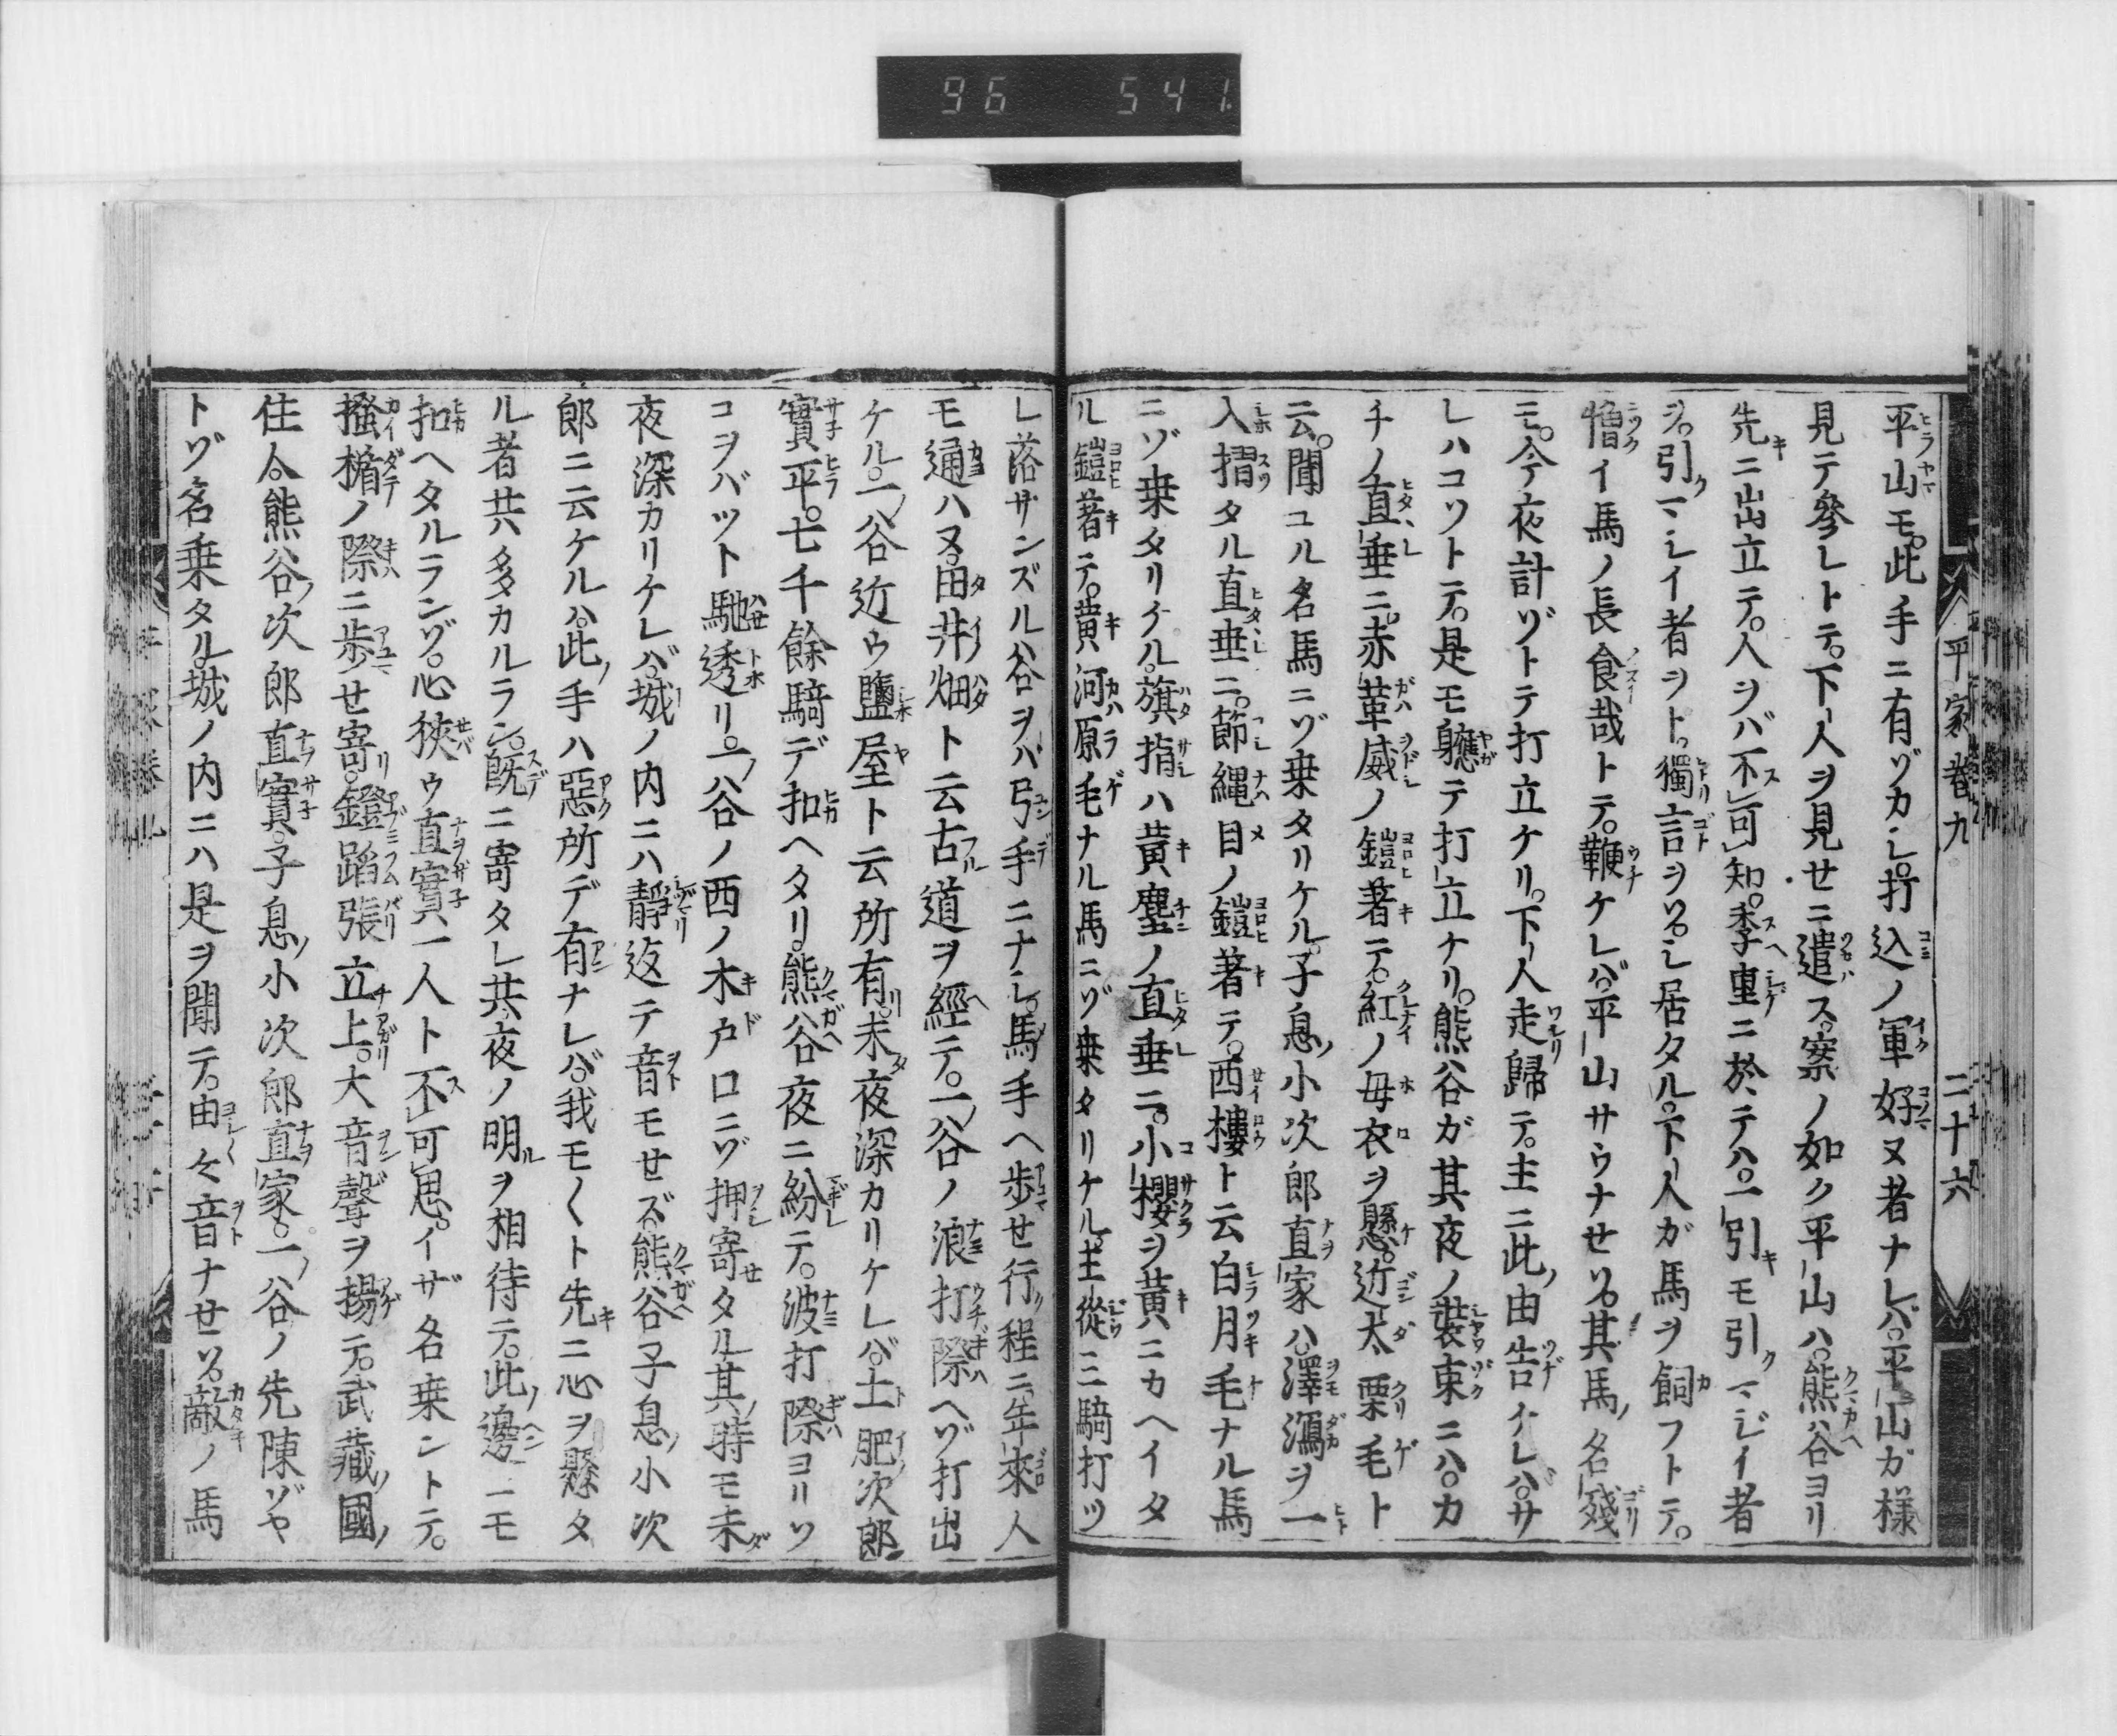 96 541.
平家巻九 二十六
平山モ。此手ニ有ヅカシ。打込ノ軍好ヌ者ナレバ。平山ガ様
見テ參レトテ。下人ヲ見せニ遣ス。案ノ如ク平山ハ。熊谷ヨリ
先ニ出立テ。人ヲバ不可知。季重ニ於テハ。一引モ引マジイ者
ヲ。引マシイ者ヲト。獨言ヲソシ居タル。下人ガ馬ヲ飼フトテ。
憎イ馬ノ長食哉トテ。鞭ケレバ。平山サウナせソ。其馬ノ名殘
モ。今夜計ゾトテ打立ケリ。下人走歸テ。主ニ此ノ由告ケレバ。サ
レハコソトテ。是モ軈テ打立ケリ。熊谷ガ其夜ノ裝束ニハ。カ
チノ直垂ニ。赤革威ノ鎧著テ。紅ノ母衣ヲ懸。近太栗毛ト
云。聞ユル名馬ニゾ乗タリケル。子息ノ小次郎直家ハ。澤瀉ヲ一
入摺タル直垂ニ。節縄目ノ鎧著テ。西樓ト云白月毛ナル馬
ニゾ乗タリケル。旗指ハ黄塵ノ直垂ニ。小櫻ヲ黄ニカヘイタ
ル鎧著テ。黄河原毛ナル馬ニゾ乗タリケル。主從三騎打ツ
レ落サンズル谷ヲバ弓手ニナシ。馬手ヘ歩せ行程ニ。年來人
モ通ハヌ。田井畑ト云古道ヲ經テ。一ノ谷ノ浪打際ヘゾ打出
ケル。一ノ谷近ウ鹽屋ト云所有。未夜深カリケレバ。土肥次郎
實平。七千餘騎デ扣ヘタリ。熊谷夜ニ紛テ。波打際ヨリソ
コヲバツト馳透リ。一ノ谷ノ西ノ木戸口ニゾ押寄せタル。其ノ時モ未
夜深カリケレバ。城ノ内ニハ靜返テ音モせズ。熊谷子息ノ小次
郎ニ云ケルハ。此ノ手ハ惡所デ有ナレバ。我モ〱ト先ニ心ヲ懸タ
ル者共多カルラン。既ニ寄タレ共。夜ノ明ルヲ相待テ。此ノ邊ニモ
扣ヘタルランゾ。心狹ウ直實一人ト不可思。イザ名乗ントテ。
搔楯ノ際ニ歩せ寄リ。鐙蹈張立上。大音聲ヲ揚テ。武藏ノ國ノ
住人。熊谷ノ次郎直實。子息ノ小次郎直家。一ノ谷ノ先陳ゾヤ
トゾ名乗タル。城ノ内ニハ是ヲ聞テ。由々音ナせソ。敵ノ馬